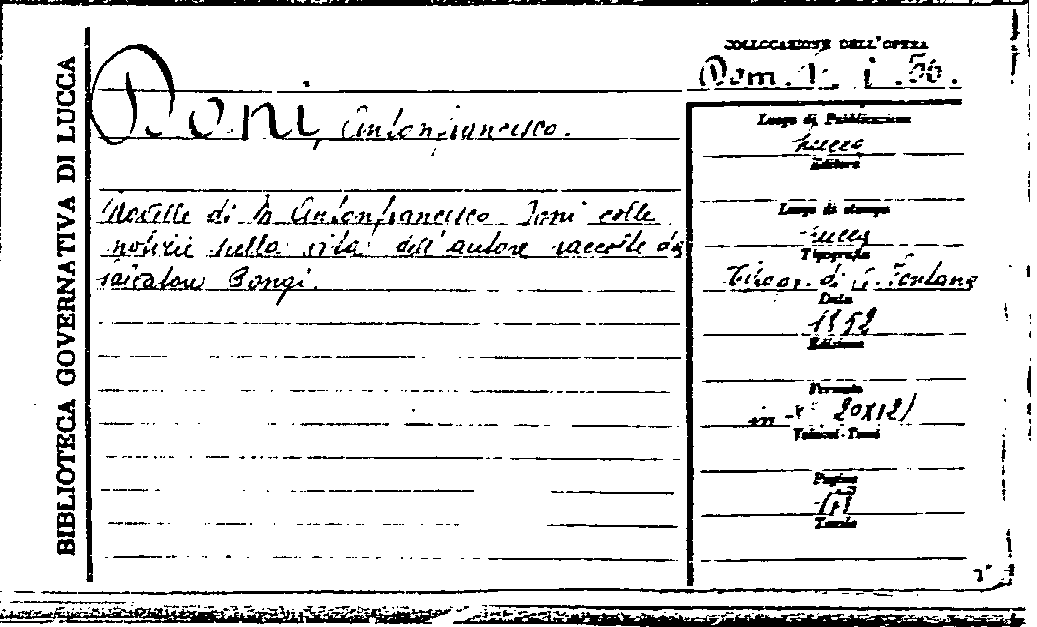 BIBLIOTECA GOVERNATIVA DI LUCCA
Doni, Antonfrancesco.
Novelle di M. Antonfrancesco Doni colle
notizie sulla vita dell'autore raccolte da
Salvatore Bongi.
COLLOCAZIONE DELL'OPERA
Dom.
Luogo di Pubblicazione
Lucca
Editore
Luogo di stampa
Lucca
Tipografia
Tipogr. di G. Fontana
Data
1852
Edizione
Formato
in -8° 20x12
Volumi-Tomi
Pagine
Tavole